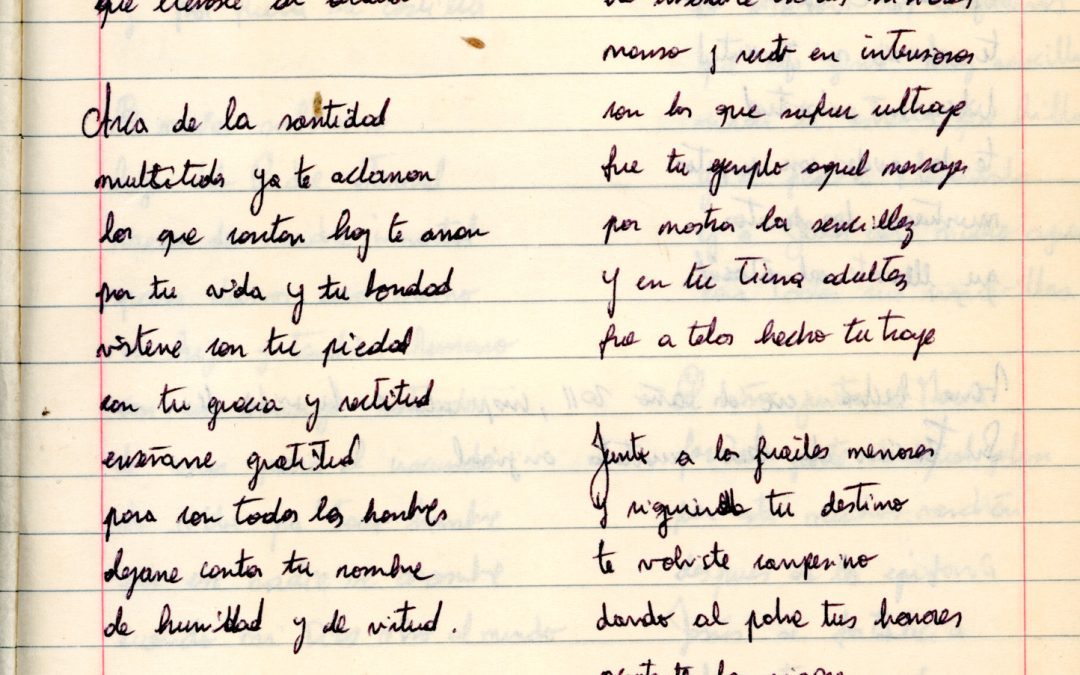 que
Arca de la santidad
multitudes ya te aclaman
los que cantan hoy te aman
por tu vida y tu bondad
visteme con tu piedad
con tu gracia y rectitud
enseñame gratitud
para con todos los hombres
dejame cantar tu nombre
de humildad y de virtud.
manso y recto en intensores
con los que sufren ultraje
fue tu ejemplo aquel mensaje
por mostrar la sencillez
y en tu tierna adultez
fue a telas hecho tu traje
Junto a los frailes menores
y siguiendo tu destino
te volviste campesino
dando al pobre tus honores